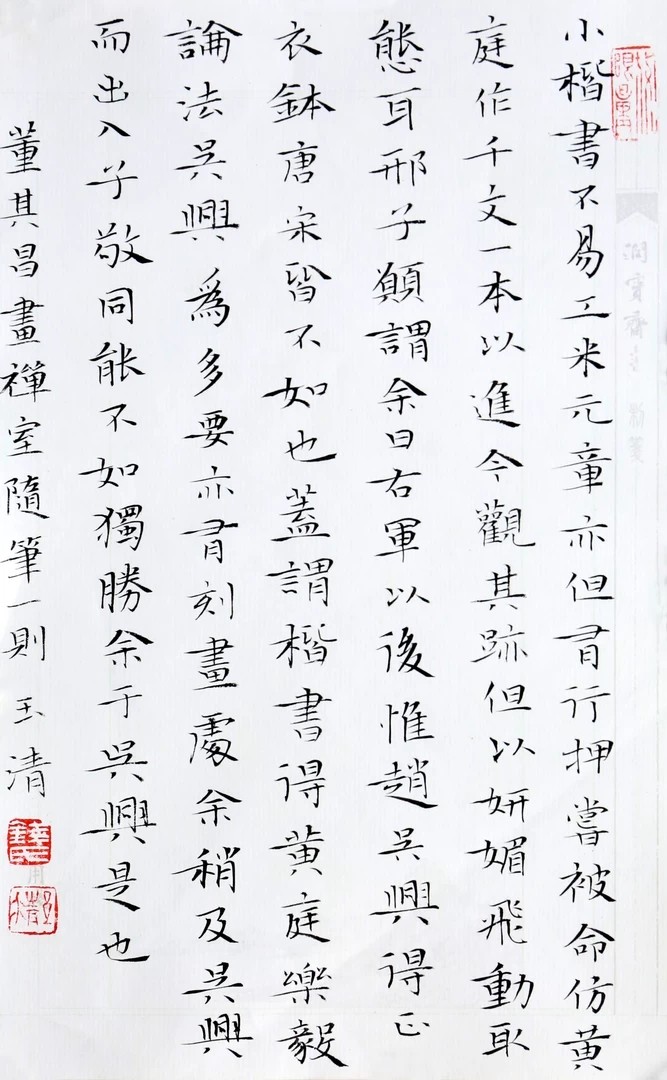 小楷書不易工米元章亦但有行押嘗被命仿黃
庭作千文一本以進今觀其跡但以妍媚飛動取
態耳邢子願謂余曰右軍以後惟趙吳興得正
衣鉢唐宋皆不如也蓋謂楷書得黃庭樂毅
論法吳興為多要亦有刻畫處余稍及吳興
而出入子敬同能不如獨勝余于吳興是也
董其昌畫禪室隨筆一則 玉清